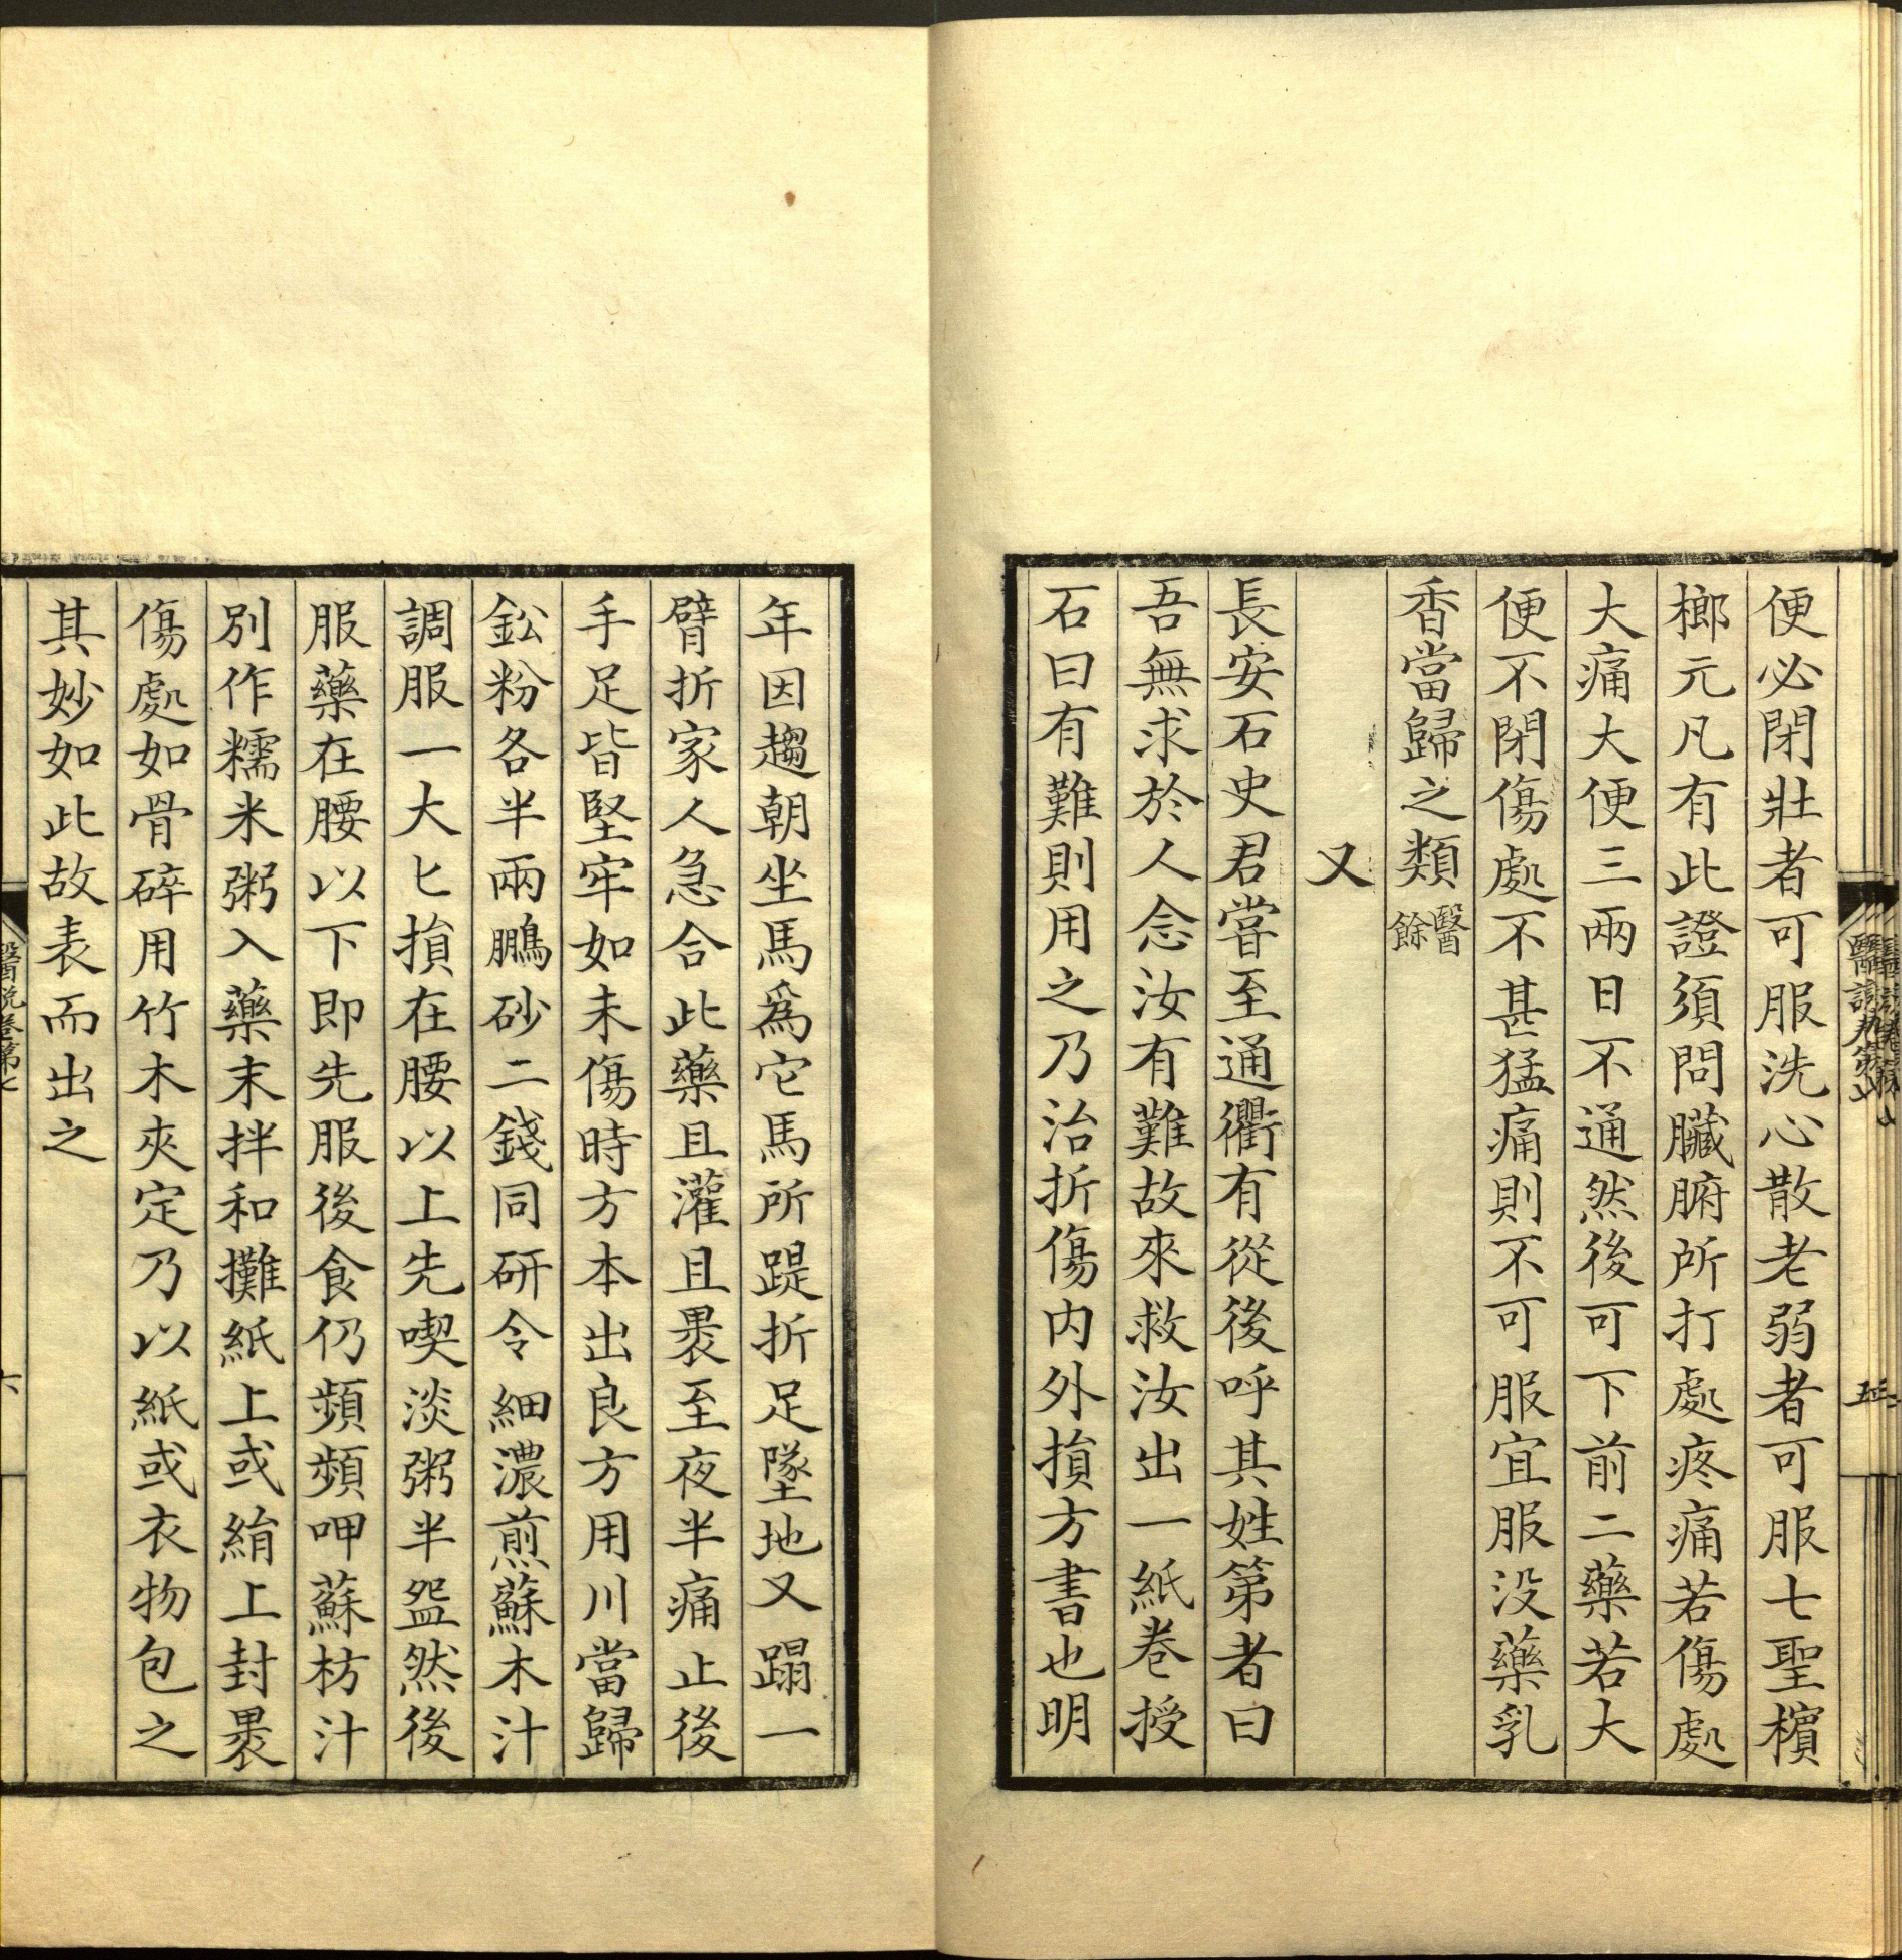 便必閉壯者可服洗心散老弱者可服七聖檳
榔元凡有此證須問臟腑所打處疼痛若傷處
大痛大便三兩日不通然後可下前二藥若大
便不閉傷處不甚猛痛則不可服宜服没藥乳
香當歸之類醫餘
又
長安石史君嘗至通衢有從後呼其姓第者曰
吾無求於人念汝有難故來救汝出一紙卷授
石曰有難則用之乃治折傷内外損方書也明
年因趨朝坐馬爲它馬所踶折足墜地又蹋一
臂折家人急合此藥且灌且褁至夜半痛止後
手足皆堅牢如未傷時方本出良方用川當歸
鈆粉各半兩鵬砂二錢同研令細濃煎蘇木汁
調服一大匕損在腰以上先喫淡粥半盌然後
服藥在腰以下即先服後食仍頻頻呷蘇枋汁
別作糯米粥入藥末拌和攤紙上或絹上封褁
傷處如骨碎用竹木夾定乃以紙或衣物包之
其妙如此故表而出之
醫説卷第七
六